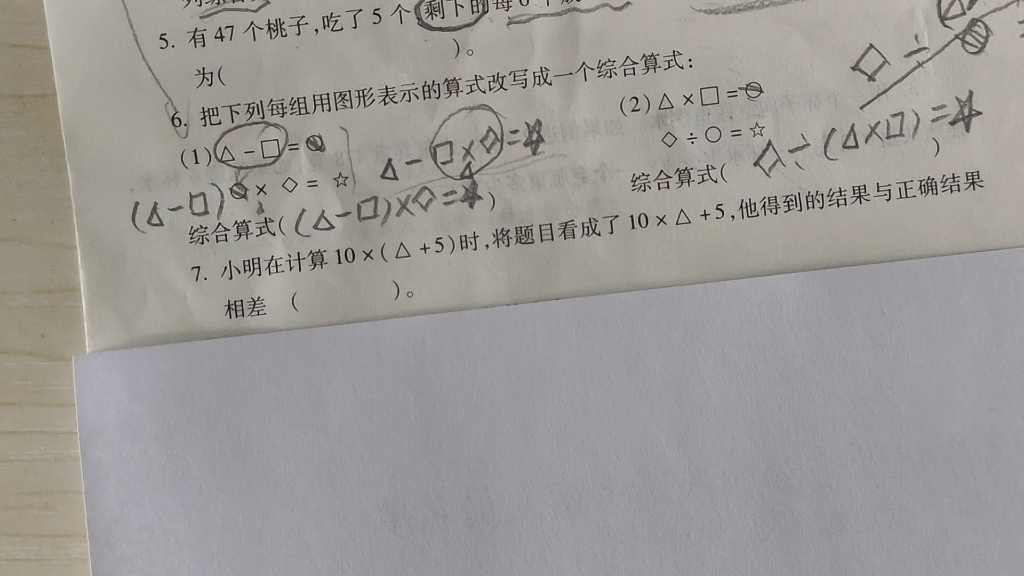 5. 有47个桃子,吃了5个,剩下的每6个
为( )。
6. 把下列每组用图形表示的算式改写成一个综合算式:
(1) △-□=○
○× ◇= ☆
(△-□)
△-□×◇=☆
综合算式( (△-□)×◇=☆ )
(2) △×□=○
◇÷○=☆
综合算式( ◇÷(△×□)=☆ )
◇÷
7. 小明在计算10×(△+5)时,将题目看成了10×△+5,他得到的结果与正确结果
相差 ( )。